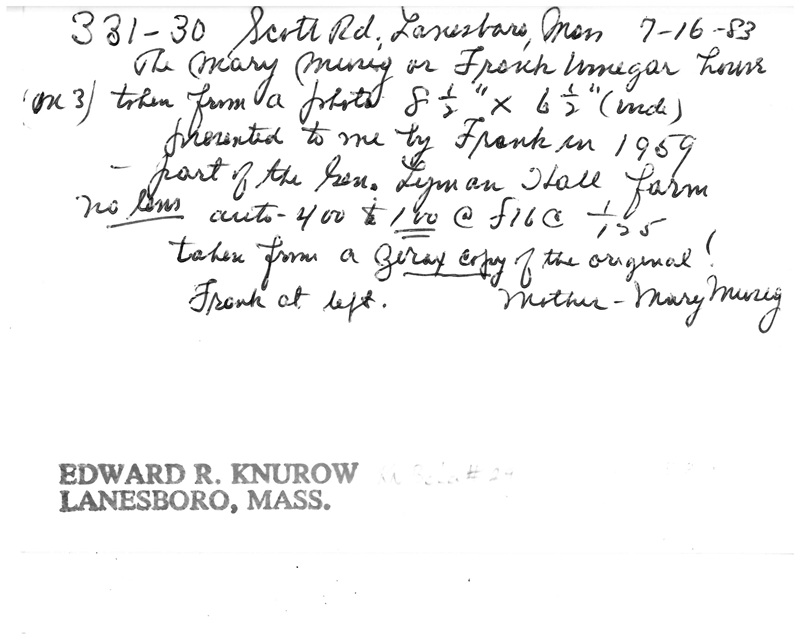 331-30 Scott Rd, Lanesboro, Mass 7-16-83
The Mary or Frank house
(on 3) taken from a photo 8 1/2" x 6 1/2" (inch)
presented to me by Frank in 1959
- part of the Gen. Lyman Hall farm
no lens auto-400 & 100 @ f16 @ 1/125
taken from a Zerax copy of the original!
Frank at left. Mother - Mary
EDWARD R. KNUROW
LANESBORO, MASS.